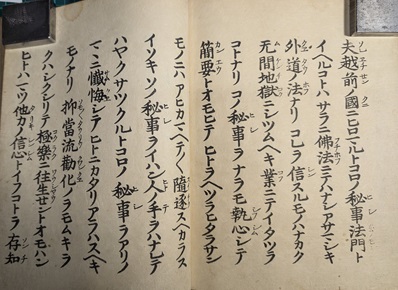 夫越前ノ國ニヒロマルトコロノ秘事法門ト
イヘルコトハサラニ佛法ニテハナシアサマシキ
外道ノ法ナリコレヲ信スルモノハナカク
无間地獄ニシツムヘキ業ニテイタツラ
コトナリコノ秘事ヲナヲモ執心シテ
簡要トオモヒテヒトヲヘツラヒタラサン
モノニハアヒカマヘテ〱隨逐スヘカラス
イソキソノ秘事ヲイハン人ノ手ヲハナレテ
ハヤクサツクルトコロノ秘事ヲアリノ
マヽニ懺悔シテヒトニカタリアラハスヘキ
モノナリ抑當流勸化ノヲモムキヲ
クハシクシリテ極樂ニ往生セントオモハン
ヒトハマツ他力ノ信心トイフコトヲ存知